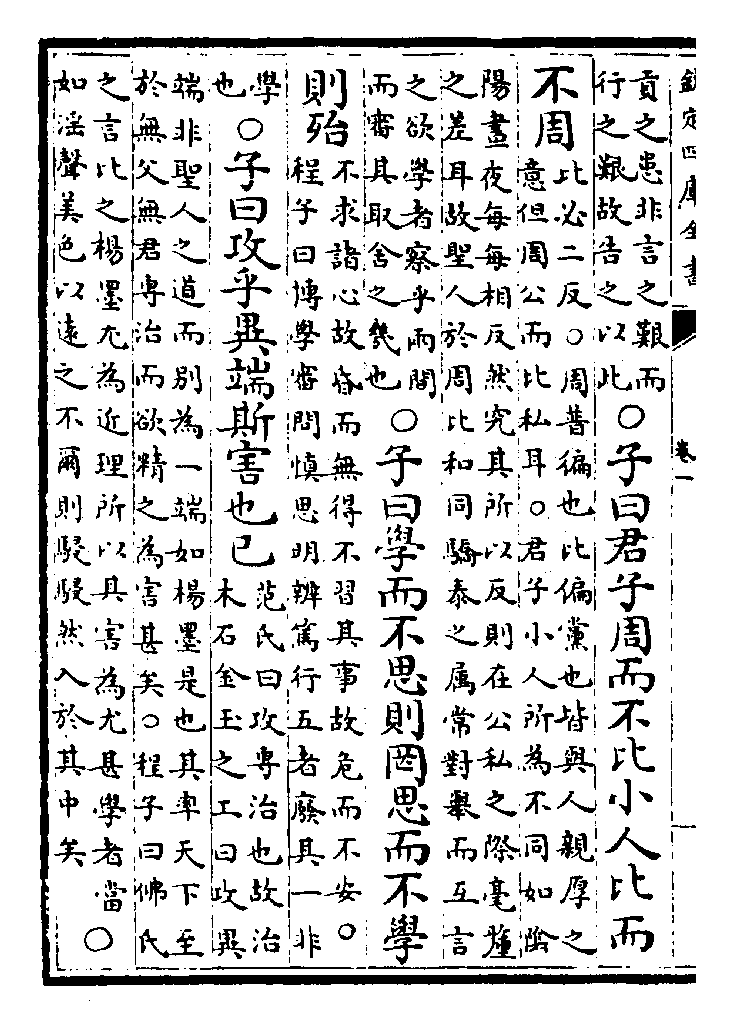 欽定四庫全書
卷一
貢之患非言之艱而
行之艱故告之以此
○子曰君子周而不比小人比而
不周
比必二反○周普徧也比偏黨也皆與人親厚之
意但周公而比私耳○君子小人所為不同如陰
陽晝夜每每相反然究其所以反則在公私之際毫釐
之差耳故聖人於周比和同驕泰之属常對舉而互言
之欲學者察乎兩間
而審其取舍之幾也
○子曰學而不思則罔思而不學
則殆
不求諸心故昏而無得不習其事故危而不安○
程子曰博學審問慎思明辨篤行五者廢其一非
學
也
○子曰攻乎異端斯害也已
范氏曰攻専治也故治
木石金玉之工曰攻異
端非聖人之道而别為一端如楊墨是也其率天下至
於無父無君専治而欲精之為害甚矣○程子曰佛氏
之言比之楊墨尤為近理所以其害為尤甚學者當
如淫聲美色以遠之不爾則駸駸然入於其中矣
○